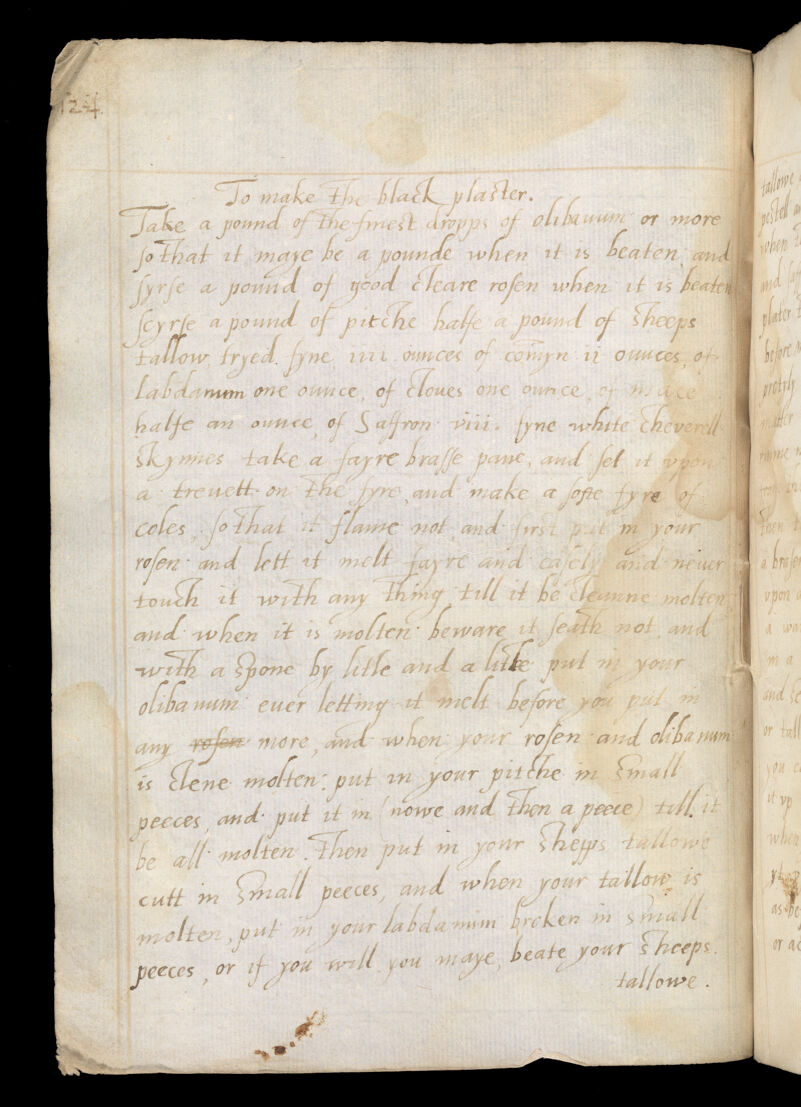 124.
To make the black plaster.
Take a pound of the finest dropps of olibanum or more
so that it maye be a pounde when it is beaten, and
syrse a pound of good cleare rosen when it is beaten
scyrse a pound of pitche halfe a pound of sheeps
tallow fryed fyne iiii ounces of comyn ii ounces, of
labdanum one ounce, of cloves one ounce, of mace
halfe an ounce, of Saffron viii. fyne white cheverell
skynnes take a fayre brasse pane, and set it vpon
a trevett on the fyre, and make a softe fyre of
coles, so that it flame not, and first put in your
rosen and lett it melt fayre and easely and never
touch it with any thing till it be cleanne molten
and when it is molten beware it seath not, and
with a spone by litle and a litle put in your
olibanum ever letting it melt before you put in
any rosen more, and when your rosen and olibanum
is clene molten: put in your pitche in small
peeces, and put it in (nowe and then a peece) till it
be all molten. Then put in your sheeps tallowe
cutt in small peeces, and when your tallow is
molten, put in your labdanum broken in small
peeces, or if you will you maye, beate your sheeps
tallowe.
tallowe
when
and
plater
before
matter
vpon a
and
or tall
it vp
when
or